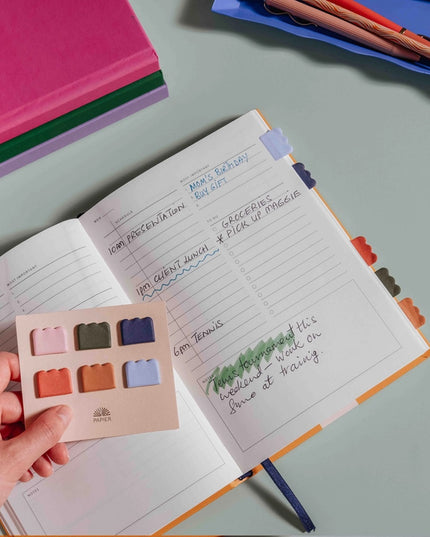 MOST IMPORTANT
NOTES
MON
SCHEDULE
10am PRESENTATION
1pm CLIENT LUNCH
6pm TENNIS
MOST IMPORTANT
MOM'S BIRTHDAY
BUY GIFT
TO DO
GROCERIES
* PICK UP MAGGIE
Tennis tournament this
weekend – work on
at
PAPIER